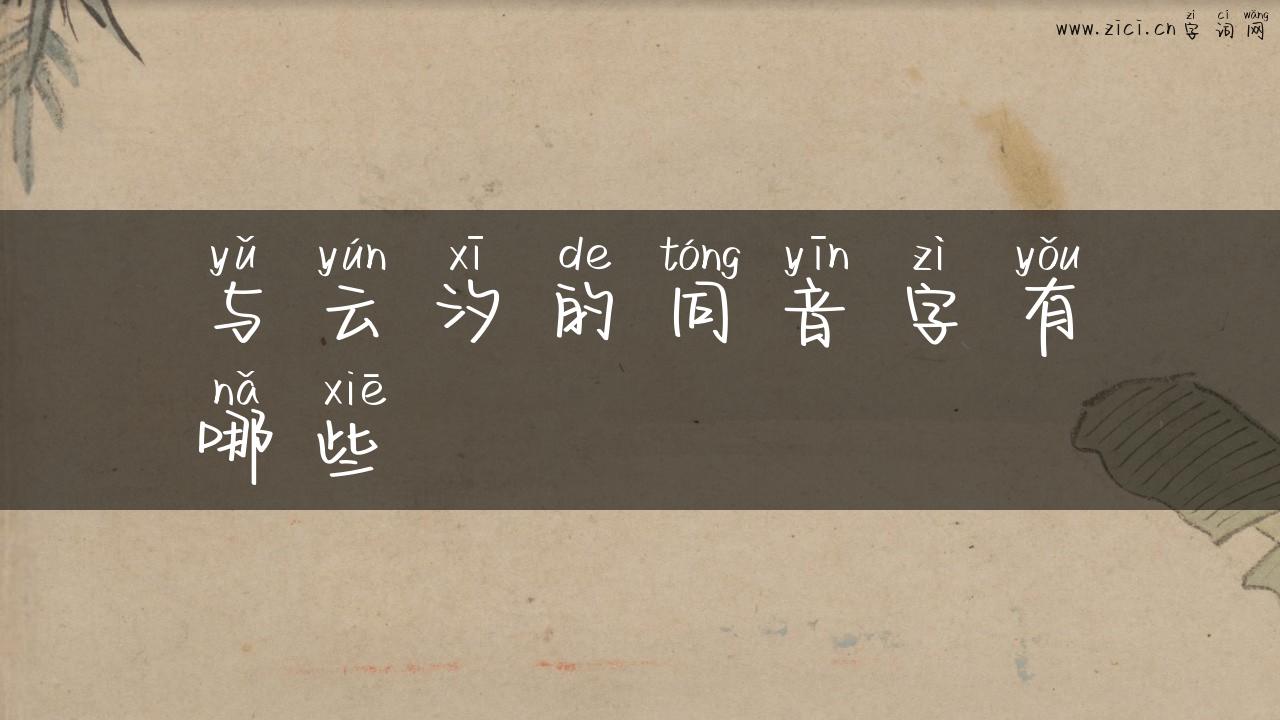 zì cí wǎng
www.zici.cn 字词网
yǔ yún xī de tóng yīn zì yǒu
与云汐的同音字有
nǎ xiē
哪些